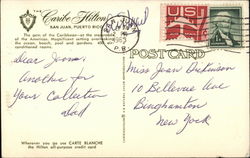 THE Caribe Hilton
SAN JUAN, PUERTO RICO
The gem of the Caribbean—at the crossroads
of the Americas. Magnificent setting overlooking
the ocean, beach, pool and gardens. All
air-conditioned rooms.
POSTCARD
Dear Jeann,
Another for
Your Collection
Dad
Miss Jean Dickinson
10 Bellevue Ave
Binghamton
New York
Whenever you go use CARTE BLANCHE
the Hilton all-purpose credit card